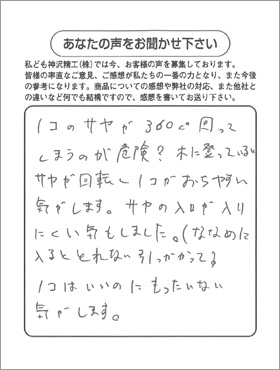 あなたの声をお聞かせ下さい
私ども神沢精工(株)では今、お客様の声を募集しております。
皆様の率直なご意見、ご感想が私たちの一番の力となり、また今後
の参考になります。商品についての感想や弊社の対応、また他社と
の違いなど何でも結構ですので、感想を書いてお送り下さい。
ノコのサヤが360° 回って
しまうのが危険? 木に登っている時
サヤが回転しノコがおちやすい
気がします。サヤの入口が入り
にくい気もしました。(ななめに
入るととれない引っかかってる
ノコはいいのにもったいない
気がします。